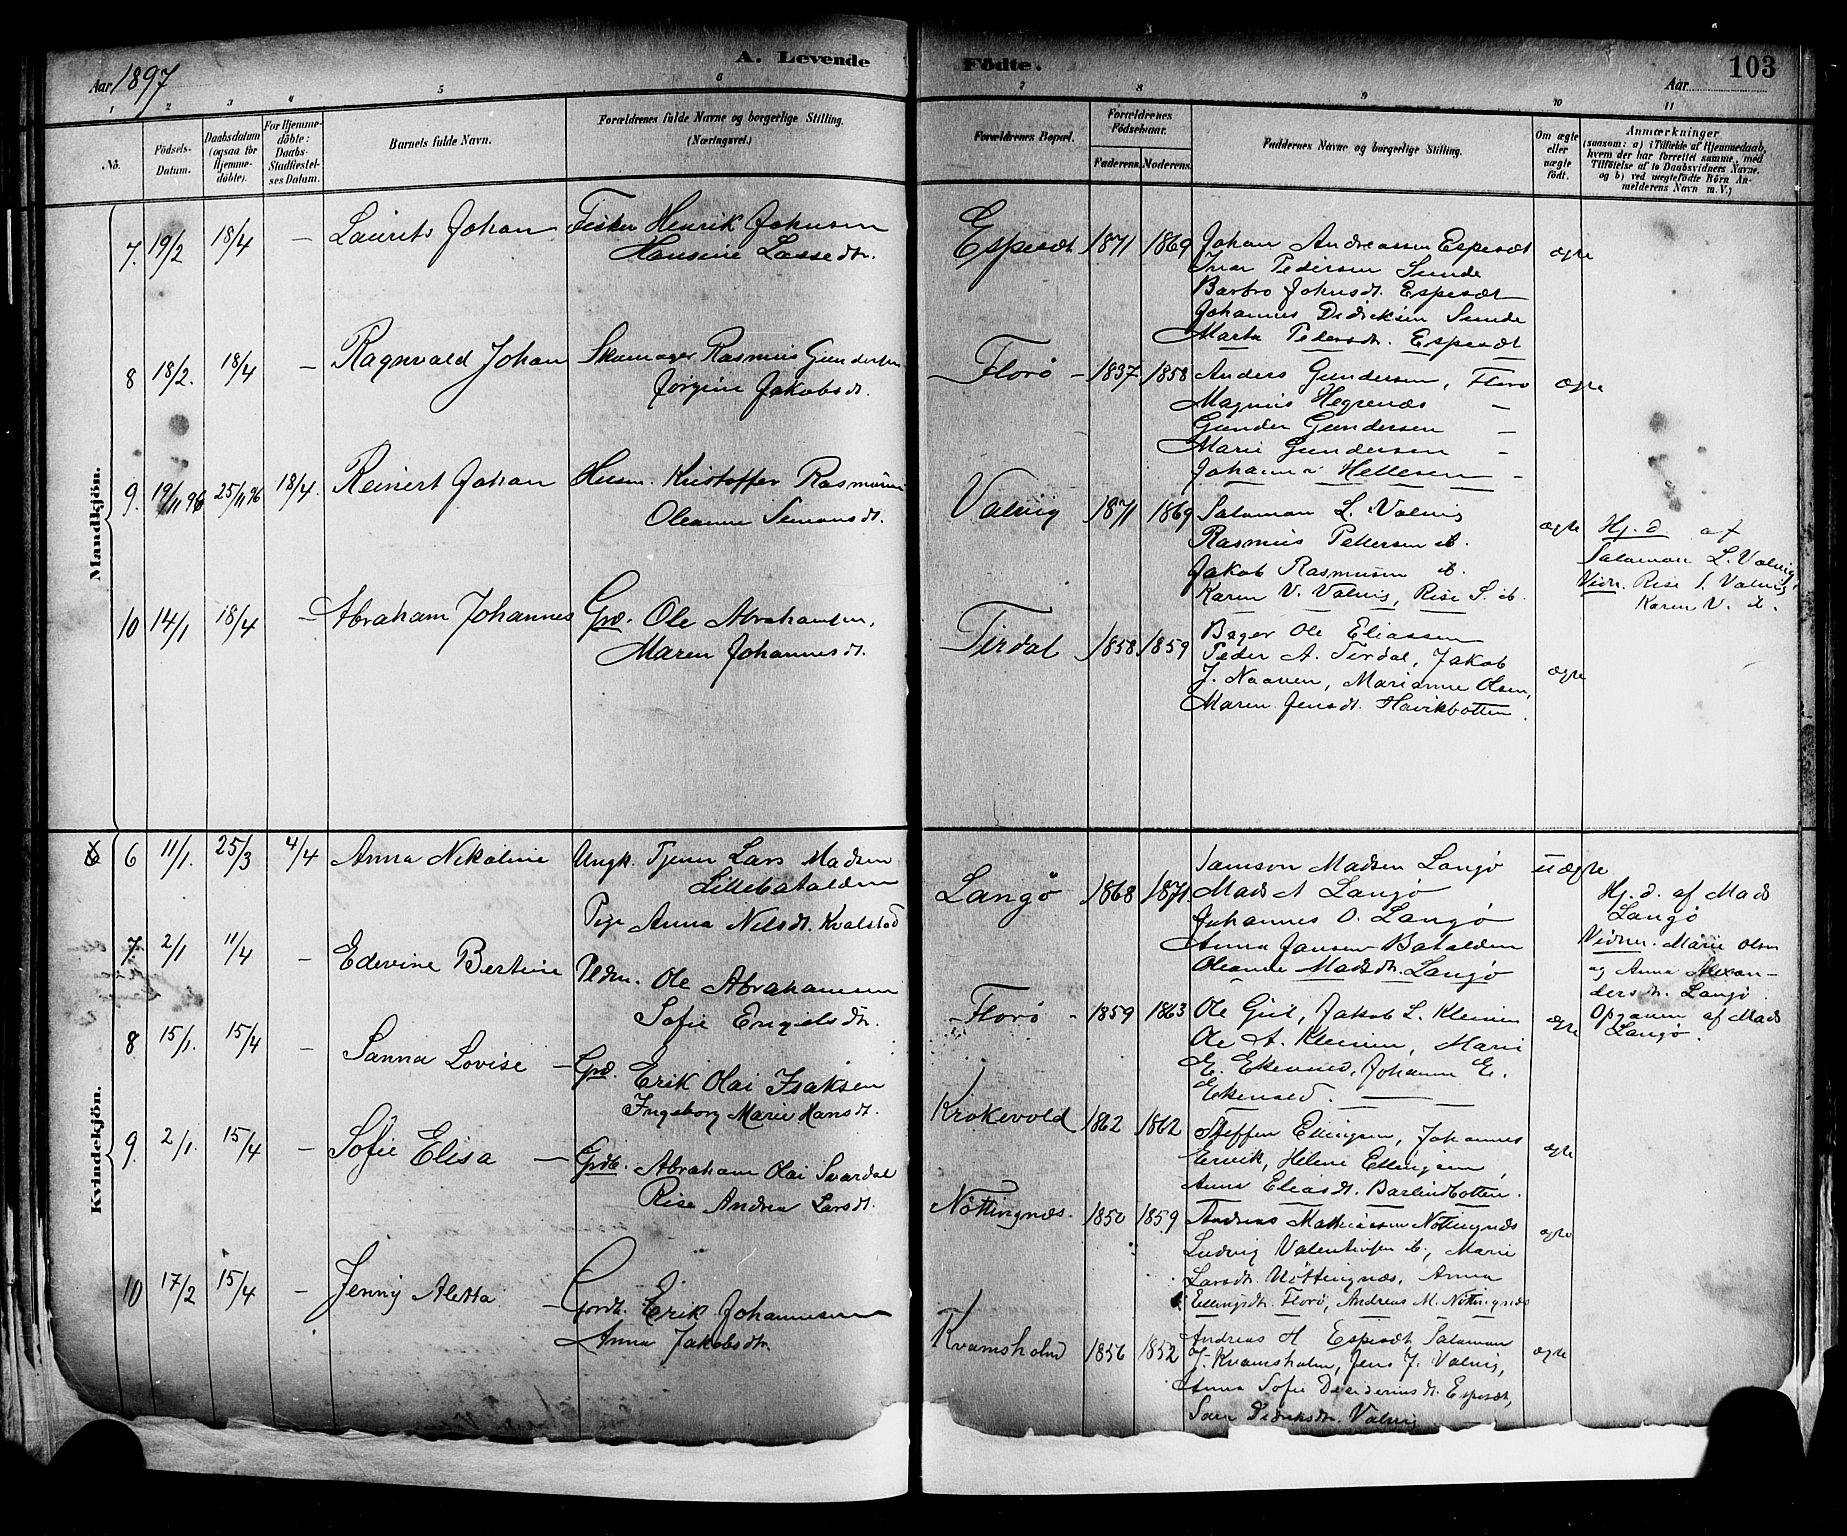 Aar 1897
A. Levende
Födte.
Aar
103
1 2 3 4 5 6 7 8 9 10 11
No.
Födsels-
Datum.
Daabsdatum
(ogsaa for
Hjemme-
döbte).
For Hjemme-
döbte:
Daabs-
Stadfæstel-
ses Datum.
Barnets fulde Navn.
Forældrenes fulde Navne og borgerlige Stilling.
(Næringsvei.)
Forældrenes Bopæl.
Forældrenes
Födselsaar.
Faderens. Moderens.
Faddernes Navne og borgerlige Stilling.
Om ægte
eller
uægte
födt.
Anmærkninger
(saasom: a) i Tilfælde af Hjemmedaab,
hvem der har forrettet samme, med
Tilföielse af to Daabsvidners Navne.
og b) ved uægtefödte Börn An-
melderens Navn m. V.)
Mandkjön.
7. 19/2 18/4 – Laurits Johan
Fisker Henrik Johnsen
Hansine Lassedtr.
Espesæt 1871 1869
Johan Andreassen Espesæt
Ivar Pedersen Sunde
Barbro Johnsdt. Espesæt
Johannes Didriksen Sunde
Marta Pedersdt. Espesæt
ægte
8 18/2. 18/4 – Ragnvald Johan
Skomager Rasmus Gundersen
Jørgine Jakobsdt.
Florø – 1837 1858
Anders Gundersen, Florø
Magnus Hegrenæs –
Gunder Gundersen –
Marie Gundersen –
Johanne Hellesen –
ægte
9. 19/11 96 25/11 96 18/4. Reinert Johan
Husm. Kristoffer Rasmussen
Oleanne Simonsdt.
Valvig 1871 1869
Salamon L. Valvig
Rasmus Pettersen ib.
Jakob Rasmussen ib.
Karen V. Valvig, Rise S. ib.
ægte
Hj. d. af
Salamon L. Valvig,
Vidn. Rise S. Valvig,
Karen V. ib.
10 14/1 18/4 – Abraham Johannes
Grd. Ole Abrahamsen,
Maren Johannesdt.
Tirdal 1858 1859
Bager Ole Eliassen
Peder A. Tirdal, Jakob
J. Naaven, Marianne Olsen,
Maren Jensdt. Havikbotten.
ægte
Kvindekjön.
6 6 11/1. 25/3 4/4 Anna Nikoline
Ungk. Tjener Lars Madsen
Lillebatalden
Pige Anna Nilsdt. Kvalstad
Langø 1868 1871
Samson Madsen Langø
Mads A Langø
Johannes O. Langø
Anna Jansen Batalden
Oleanne Madsdt. Langø
uægte
Hj. d. af Mads
Langø
Vidner. Marie Olsen
og Anna Alexan-
dersdt. Langø.
Opgaven af Mads
Langø.
7. 2/1 11/4 – Edevine Bertine
Ole Abrahamsen
Sofie Engelsdtr.
Florø 1859 1863
Ole Jakob L. Kleiven
Ole A. Kleiven, Marie
E. Johanne E.
ægte
8 15/1. 15/4 – Sanna Lovise –
Grd. Erik Olai Isaksen
Ingeborg Marie Hansdt.
Krokevold 1862 1862
Steffen Ellingsen, Johannes
Ervik, Helene Ellingsen,
Anna Eliasdt. Barlindbotten.
ægte
9. 2/1. 15/4 – Sofie Elisa –
Grdb. Abraham Olai Svardal
Rise Andrea Larsdt.
Nöttingnæs. 1850 1859
Andreas Mathiassen Nöttingnæs
Ludvig Valentinsen ib., Marie
Larsdt. Nöttingnæs, Anna
Ellingsdt. Florø, Andreas M. Nöttingnæs
ægte
10 17/2 15/4 – Jenny Aletta –
Gordb. Erik Johannesen
Anna Jakobsdtr.
Kvamsholm 1856 1852
Andreas H Espesæt Salamon
J. Kvamsholm, Jens J. Valvig,
Anna Sofie Desideriusdt. Espesæt,
Sara Didriksdt. Valvig
ægte